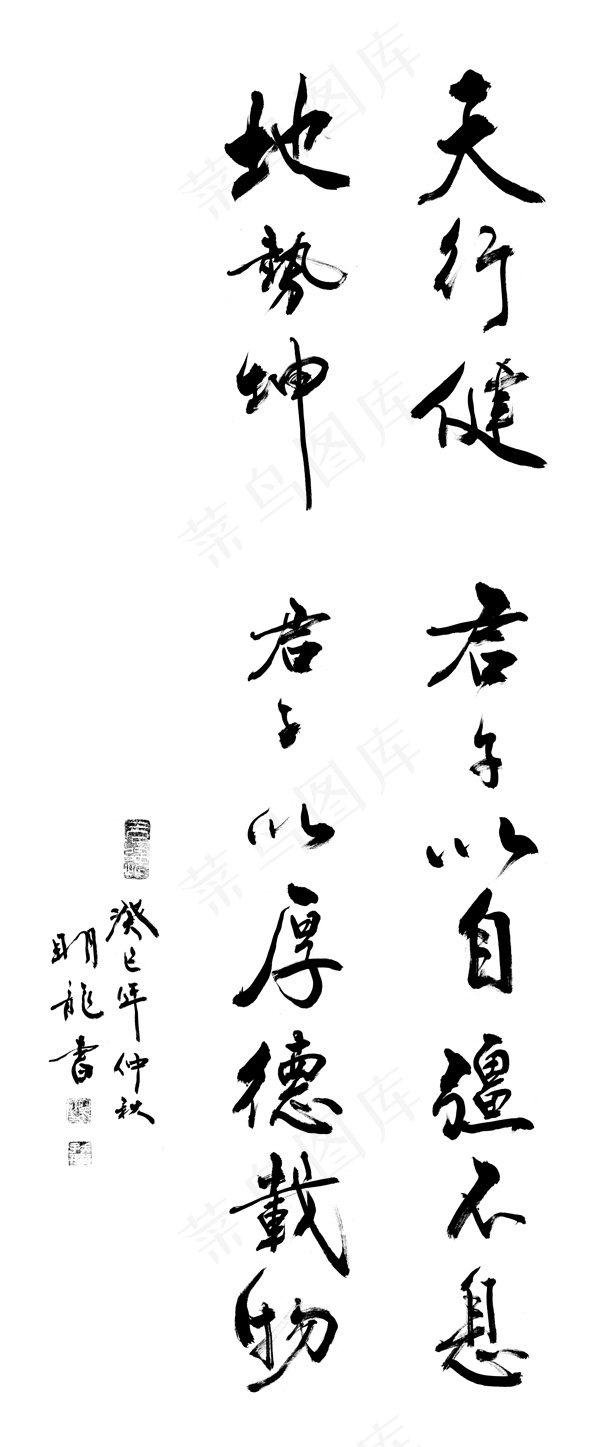 天行健 君子以自彊不息
地勢坤 君子以厚德載物
癸巳年仲秋
明龍書
菜鸟图库
菜鸟图库
菜鸟图库
菜鸟图库